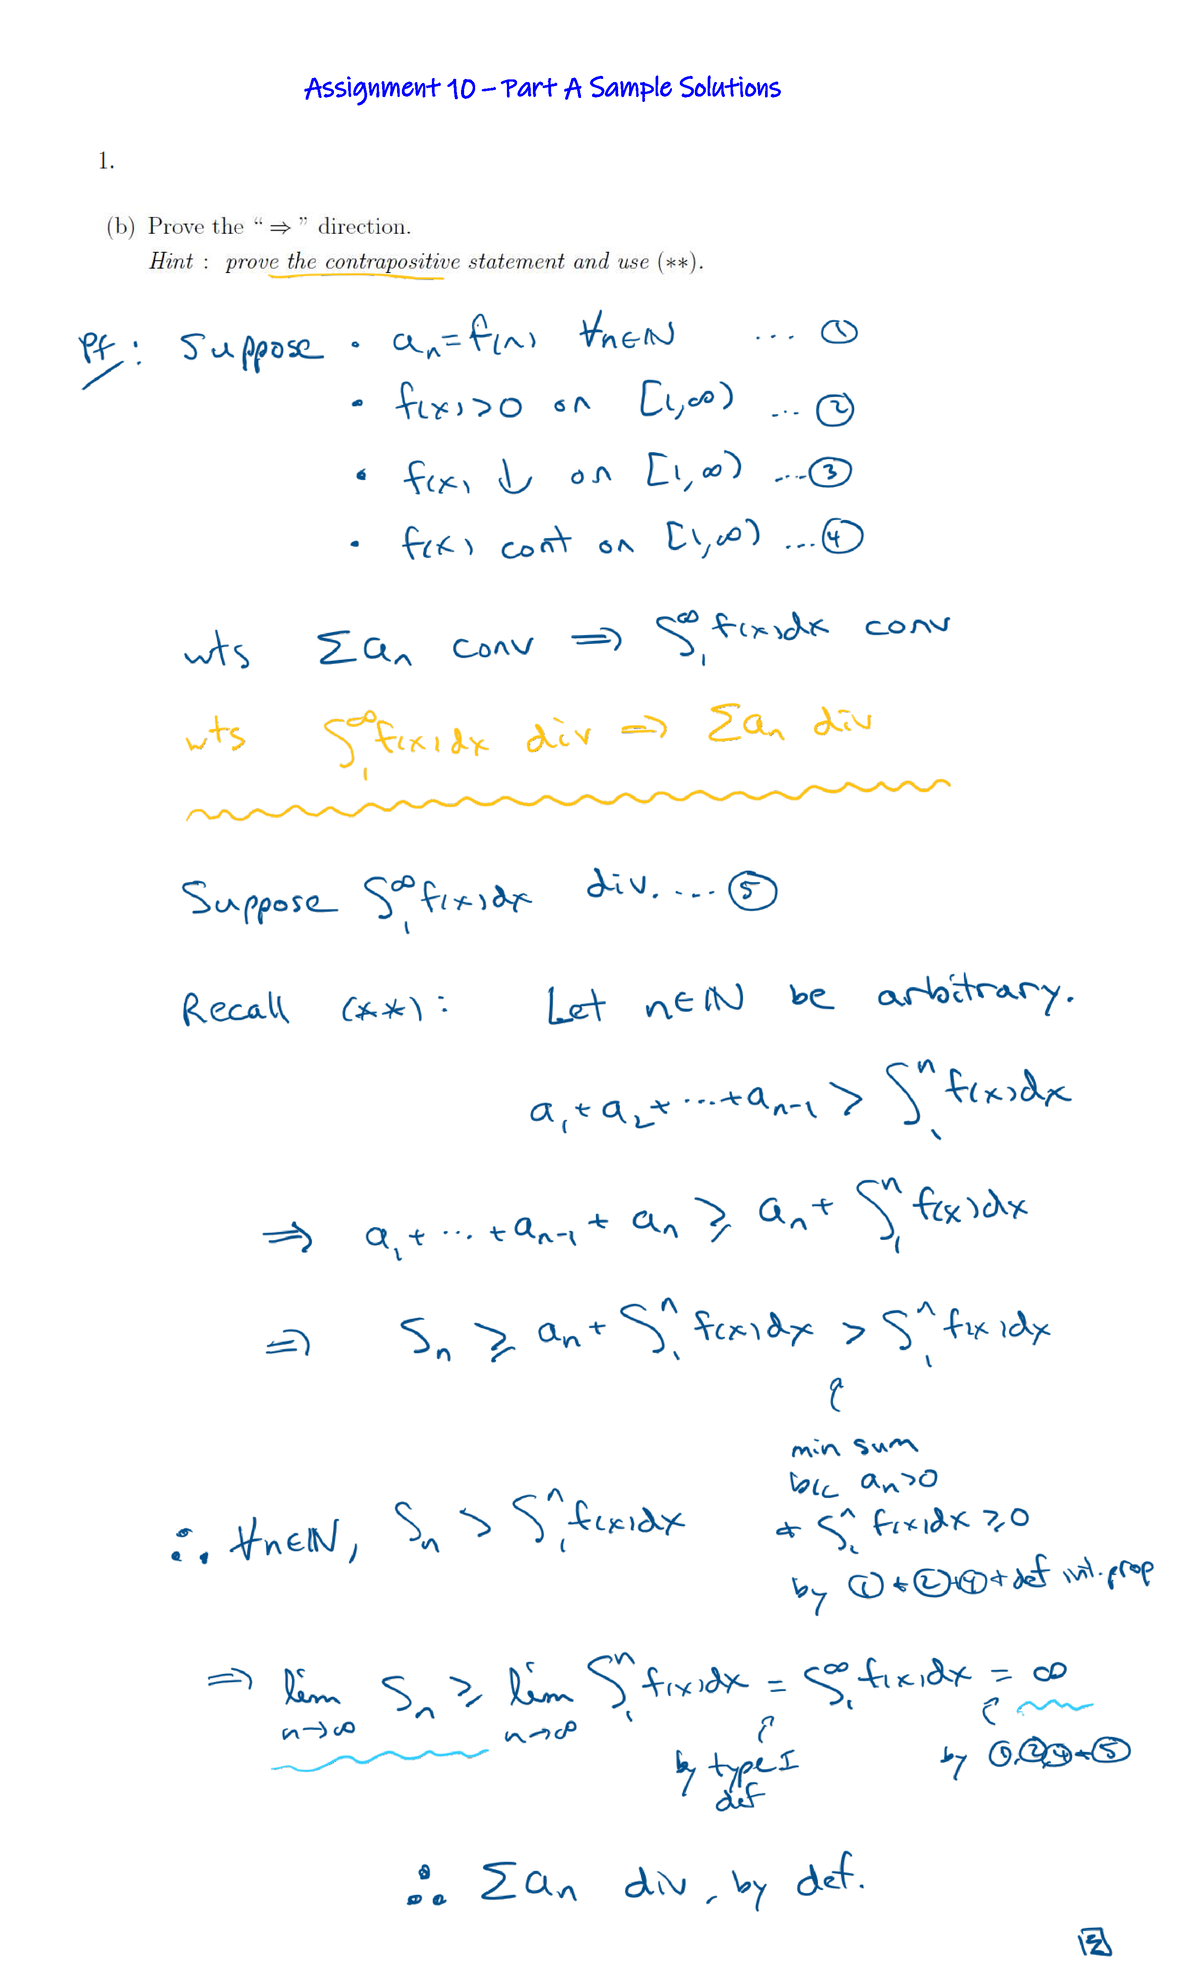 Assignment 10 – Part A Sample Solutions
1.
(b) Prove the “ ⇒ ” direction.
Hint : prove the contrapositive statement and use (∗∗).
Pf: Suppose • aₙ = f(n) ∀n∈ℕ ... ①
• f(x) > 0 on [1,∞) ... ②
• f(x) ↓ on [1,∞) ... ③
• f(x) cont on [1,∞) ... ④
wts Σaₙ conv ⇒ ∫₁^∞ f(x)dx conv
wts ∫₁^∞ f(x)dx div ⇒ Σaₙ div
Suppose ∫₁^∞ f(x)dx div. ... ⑤
Recall (**): Let n∈ℕ be arbitrary.
a₁ + a₂ + ... + aₙ₋₁ > ∫₁ⁿ f(x)dx
⇒ a₁ + ... + aₙ₋₁ + aₙ ≥ aₙ + ∫₁ⁿ f(x)dx
⇒ Sₙ ≥ aₙ + ∫₁ⁿ f(x)dx > ∫₁ⁿ f(x)dx
min sum
b/c aₙ>0
+ ∫₁ⁿ f(x)dx ≥ 0
by ①+②+④+def int. prop
∴ ∀n∈ℕ, Sₙ > ∫₁ⁿ f(x)dx
⇒ lim n→∞ Sₙ ≥ lim n→∞ ∫₁ⁿ f(x)dx = ∫₁^∞ f(x)dx = ∞
by type I def
by ①,②,④+⑤
∴ Σaₙ div, by def.